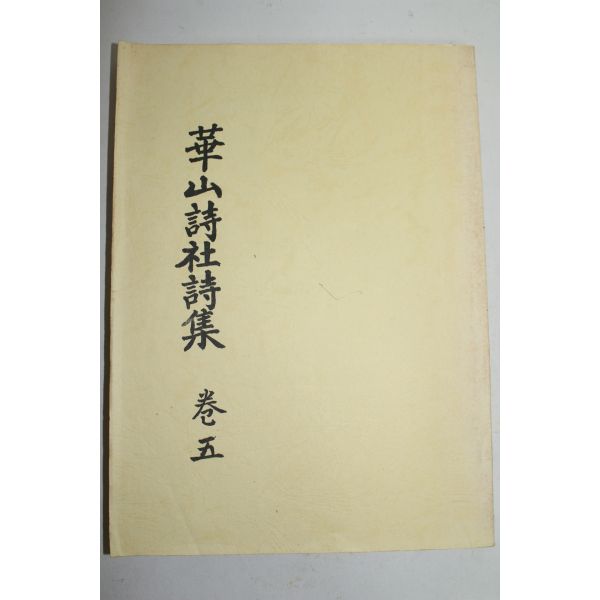 華山詩社詩集 卷五